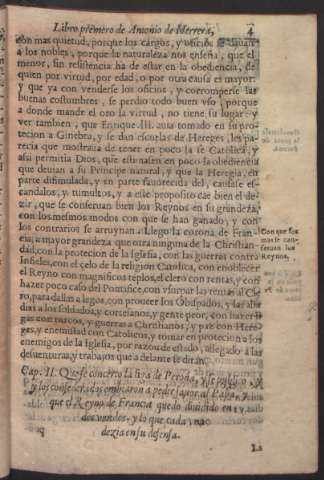 Libro primero de Antonio de Herrera, 4
con mas quietud, porque los cargos, y oficios se
a los nobles, porque la naturaleza nos enseña, que el
menor, sin resistencia ha de estar en la obediencia, de
quien por virtud, por edad, o por otra causa es mayor:
y que ya con venderse los oficios, y corromperse las
buenas costumbres, se perdio todo buen vso, porque
a donde mande el oro la virtud, no tiene su lugar: y
ver tambien, que Enrique III. auia tomado en su pro-
tecion a Ginebra, y se dan escuelas de Hereges, les pa-
recia que mostraua de tener en poco la fe Catolica, y
assi permitia Dios, que estuuiessen en poco la obediencia
que deuian a su Principe natural, y que la Heregia, en
parte dissimulada, y en parte fauorecida del, causasse es-
candalos, y tumultos, y a este proposito cae bien el de-
zir, que se conseruan bien los Reynos en su grandeza,
con los mesmos modos con que se han ganado, y con
los contrarios se arruynan. Llego la corona de Fran-
cia, a mayor grandeza que otra ninguna de la Christian-
dad, con la protecion de la Iglesia, con las guerras contra
Infieles, con el celo de la religion Catolica, con enoblecer
el Reyno con magnificos templos, el clero con rentas, y con
hazer poco caso del Pontifice, con vsurpar las rentas al Cle-
ro, para dallas a legos, con proueer los Obispados, y las aba-
dias a los Soldados, y cortesanos, y gente peor, con hazer li-
gas con Turcos, y guerras a Christianos, y paz con Here-
ges, y enemistad con Catolicos, y tomar en protecion a los
enemigos de la Iglesia, por razon de estado, allegado a las
desuenturas, y trabajos que adelante se diran.
Con que for
mas se con-
seruan los
Reynos.
Cap. II. Que se concerto la
y los confederados embiaron a pedir fauor al Papa, y
que el Reyno de Francia quedo diuidido en
dos vandos, y lo que cada vno
dezia en su defensa.
La